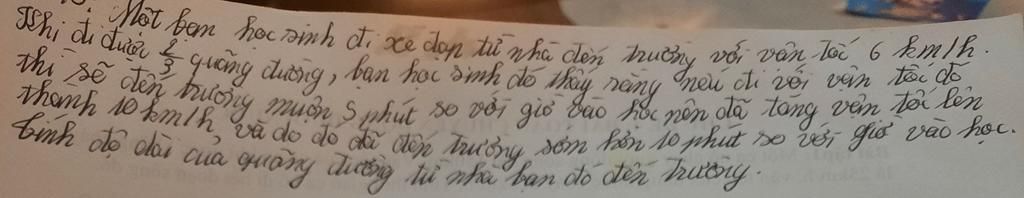 Một bạn học sinh đi xe đạp từ nhà đến trường với vân tốc 6 km/h.
Khi đi được 2/3 quãng đường, bạn học sinh đó thấy rằng nếu đi với vận tốc đó
thì sẽ đến trường muôn 5 phút so với giờ vào học nên đã tăng vận tốc lên
thành 10 km/h, và do đó đã đến trường sớm hơn 10 phút so với giờ vào học.
Tính độ dài của quãng đường từ nhà bạn đó đến trường.